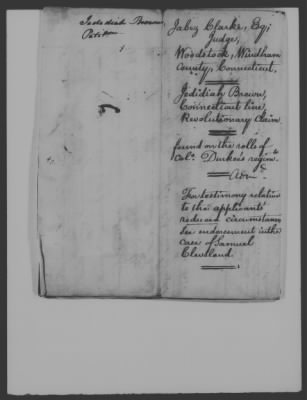 Jedediah Brown,
Petition
Jabez Clarke, Esq;
Judge,
Woodstock, Windham
County, Connecticut.
Jedidiah Brown,
Connecticut line,
Revolutionary Claim
found on the rolls of
Col. Durkee's regmt
Adm.
For testimony relative
to the applicants'
reduced circumstances
see endorsement in the
case of Samuel
Cleveland.